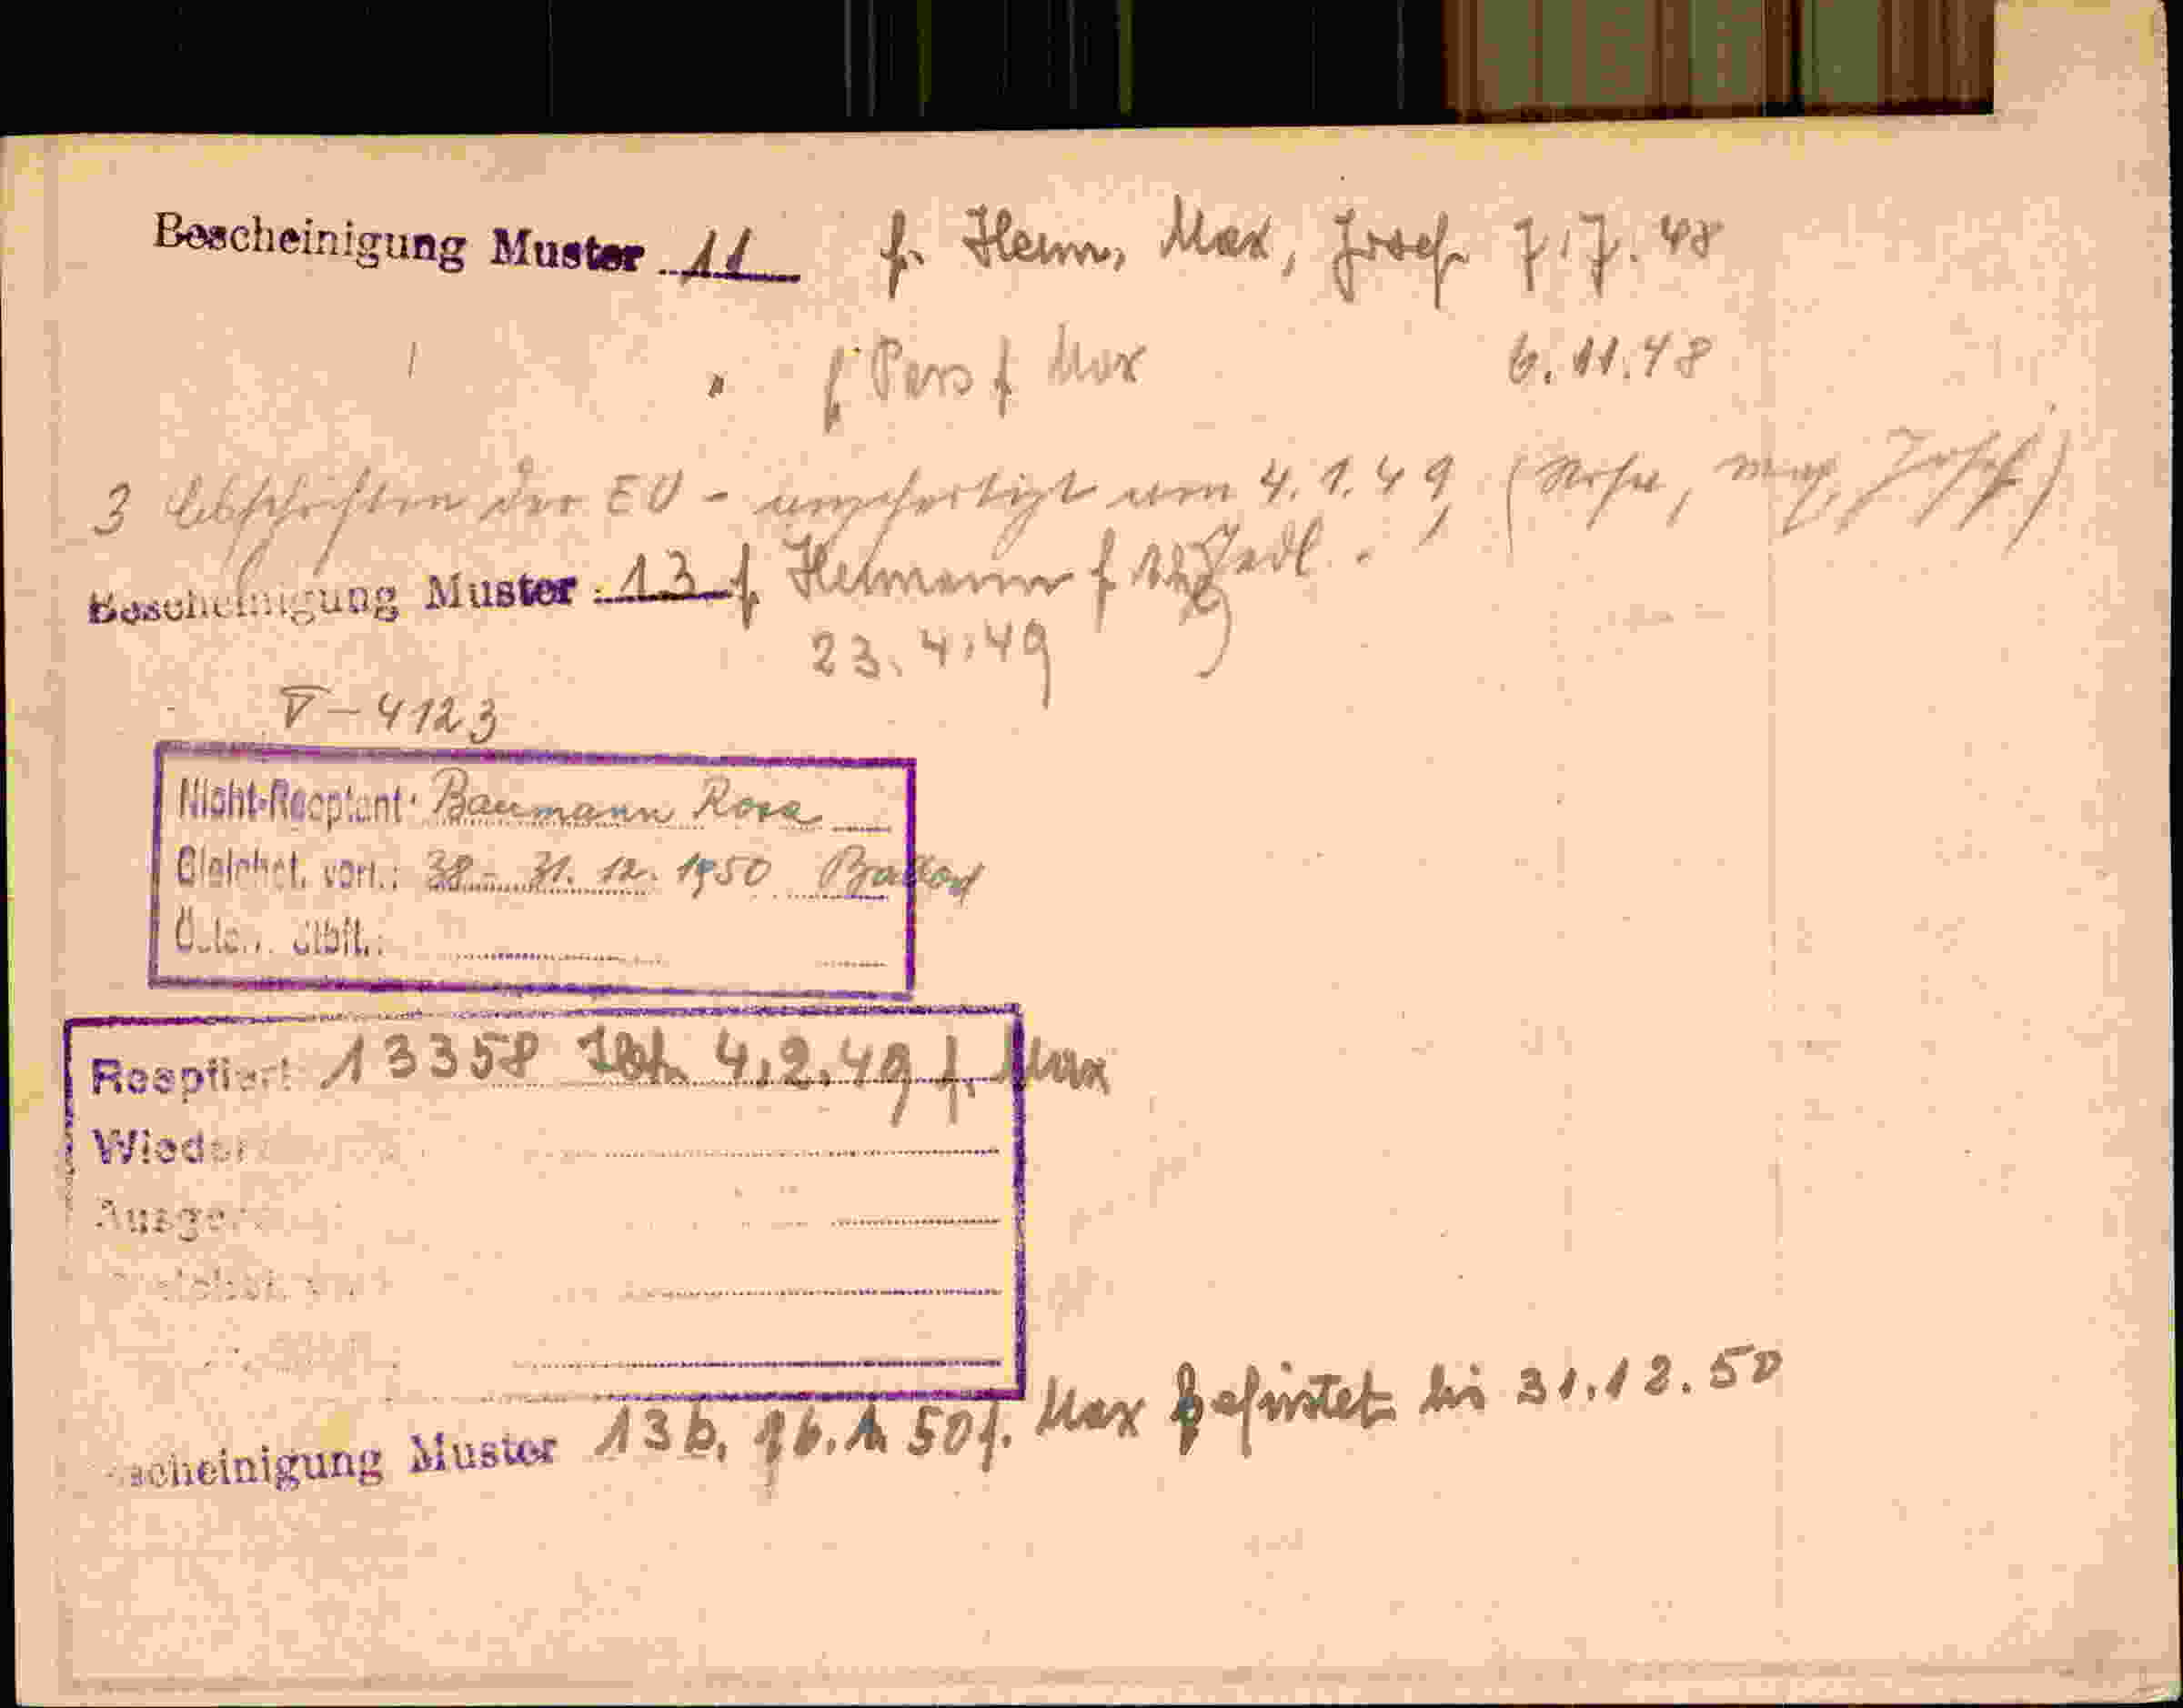 Bescheinigung Muster 11 f. Herm, Max, Josef 7.7.48
" f Pers f Max 6.11.48
3 Abschriften der EU - angefertigt am 4.1.49 (Rosa, Max, Josef)
Bescheinigung Muster 13 f. Hermann f
23.4.49
V-4123
Nicht-Reoptant: Baumann Rosa
Gleichst. vorl.: 38- 31.12.1950
Österr. Stbft.:
Reoptiert 13358 4.2.49 f. Max
Wieder
Ausge
scheinigung Muster 13b. 50 f. Max befristet bis 31.12.50